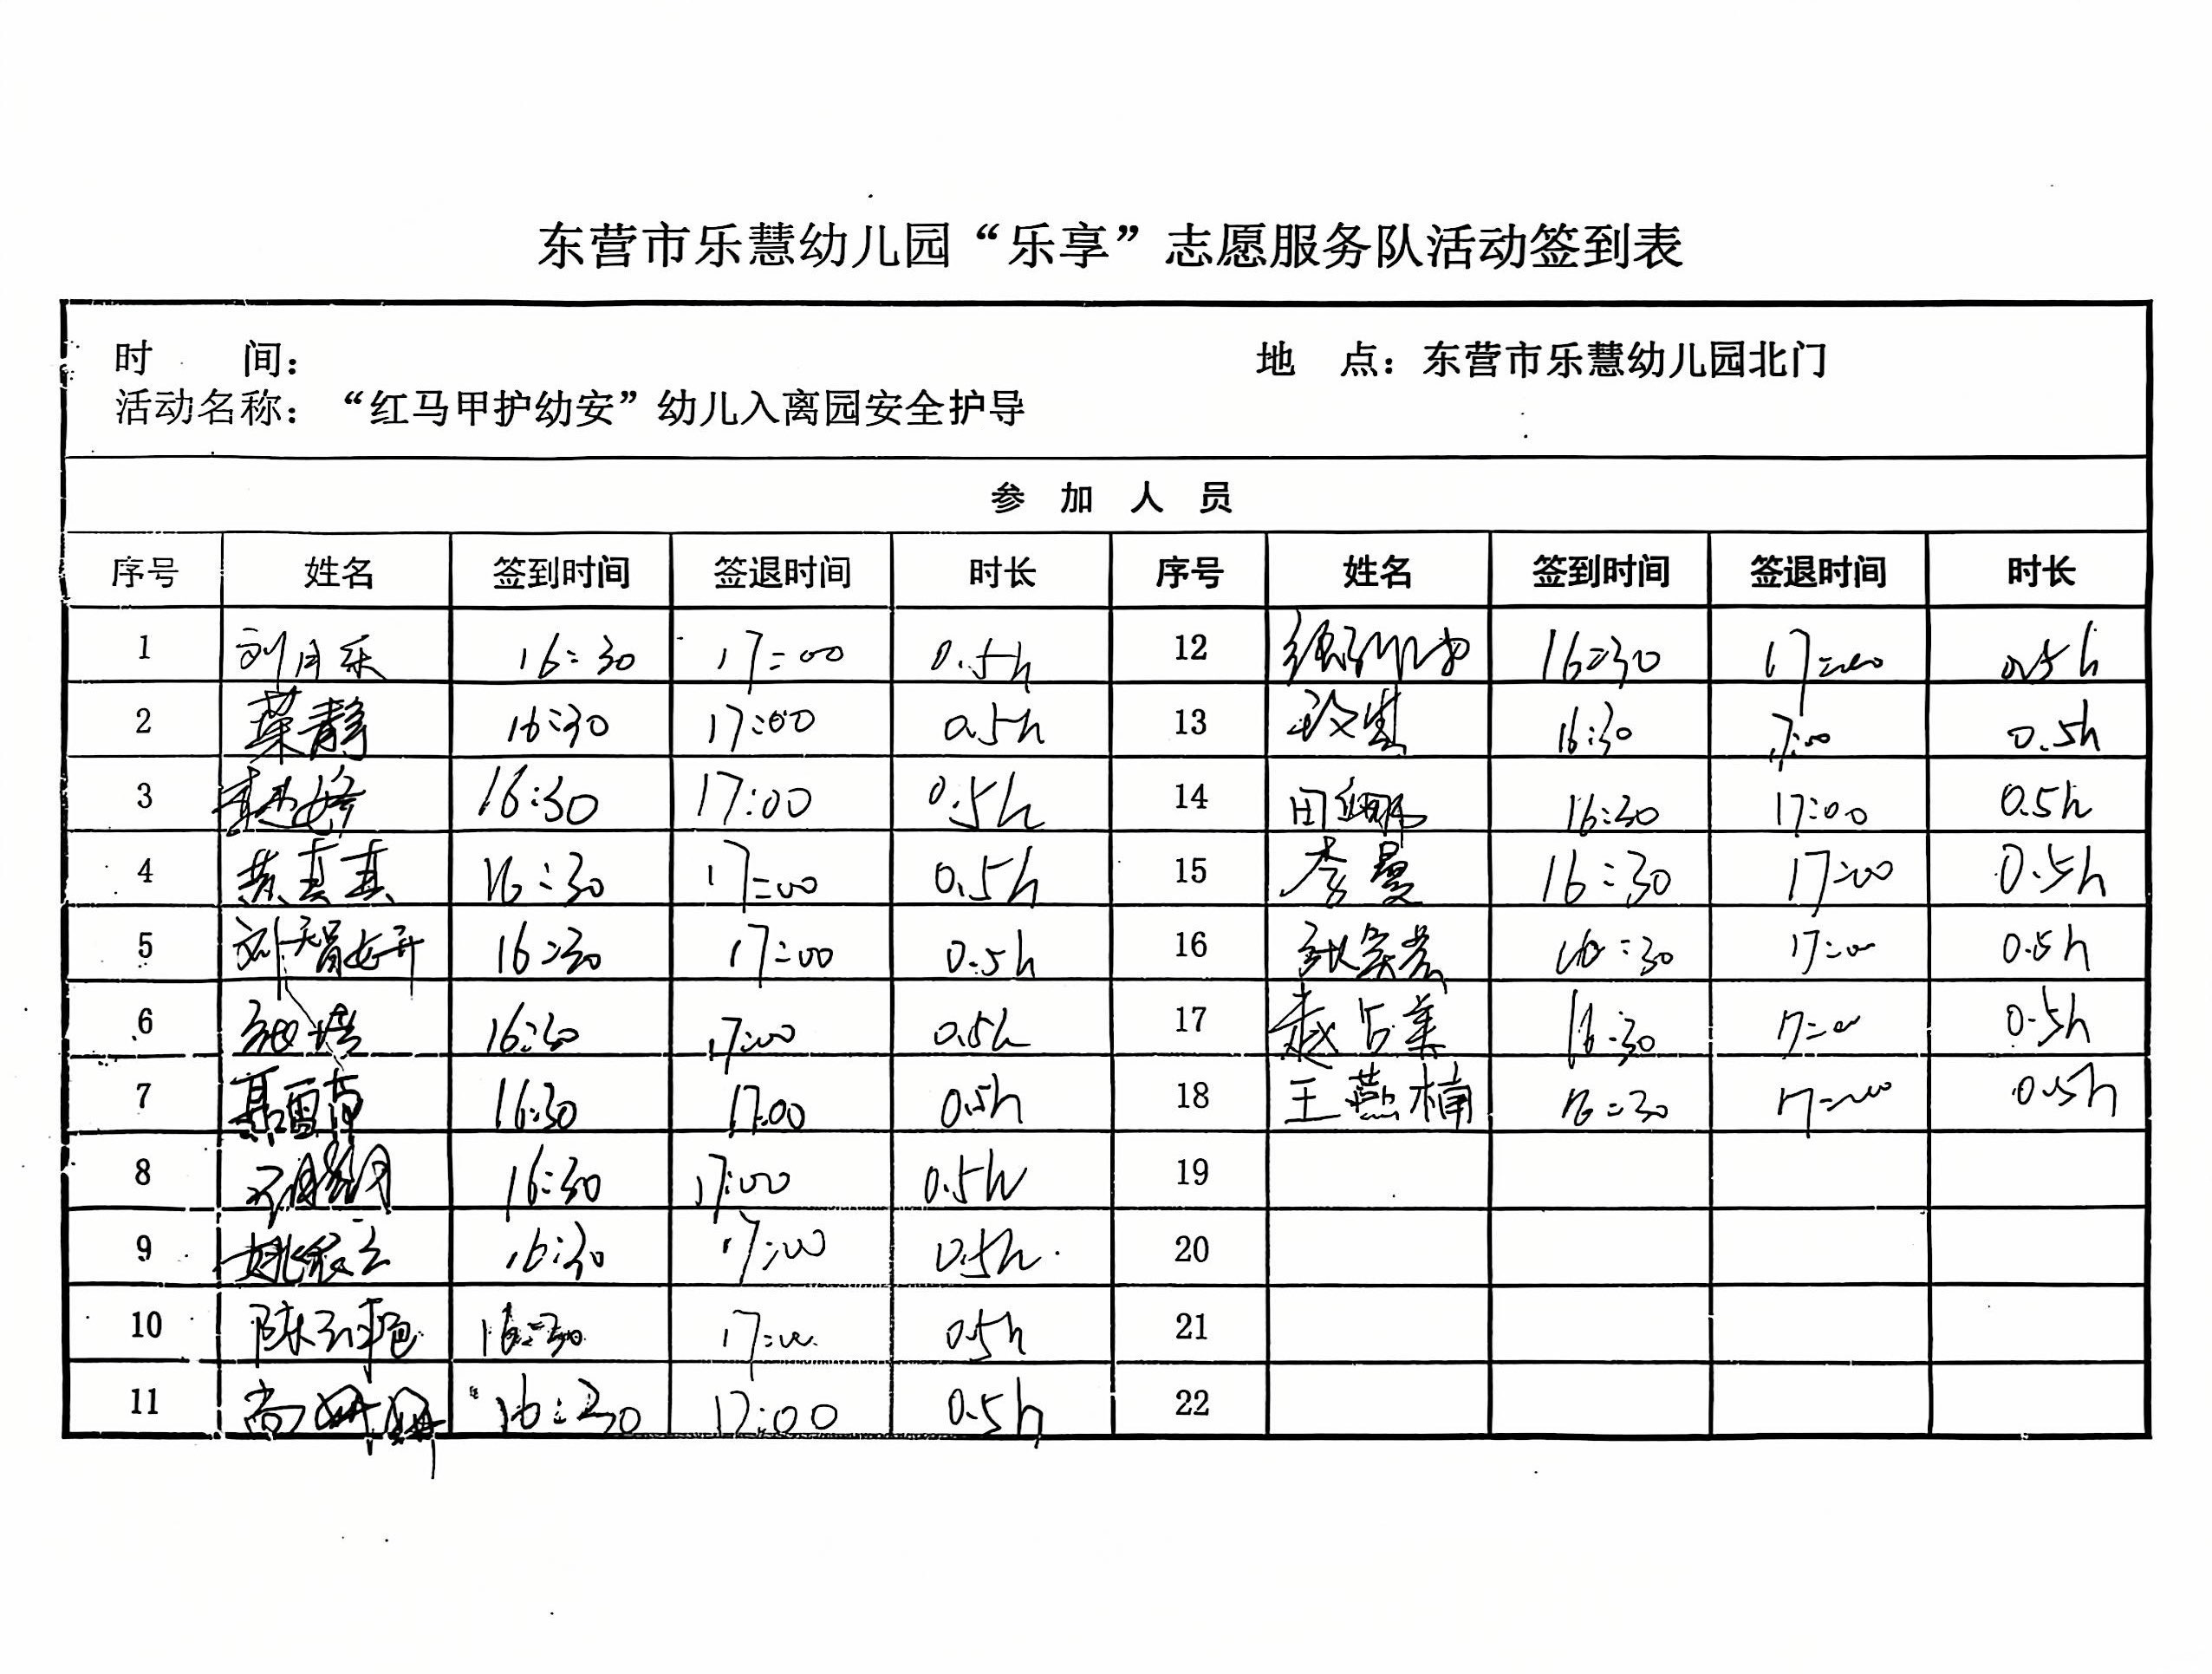 东营市乐慧幼儿园“乐享”志愿服务队活动签到表
时 间： 地 点：东营市乐慧幼儿园北门
活动名称：“红马甲护幼安”幼儿入离园安全护导
参 加 人 员
序号 姓名 签到时间 签退时间 时长 序号 姓名 签到时间 签退时间 时长
1 刘月乐 16:30 17:00 0.5h 12 16:30 17:00 0.5h
2 静 16:30 17:00 0.5h 13 16:30 17:00 0.5h
3 16:30 17:00 0.5h 14 田 16:30 17:00 0.5h
4 黄真真 16:30 17:00 0.5h 15 李曼 16:30 17:00 0.5h
5 刘 16:30 17:00 0.5h 16 张 16:30 17:00 0.5h
6 16:30 17:00 0.5h 17 赵 美 16:30 17:00 0.5h
7 聂雪 16:30 17:00 0.5h 18 王燕楠 16:30 17:00 0.5h
8 16:30 17:00 0.5h 19
9 姚 16:30 17:00 0.5h 20
10 陈 艳 16:30 17:00 0.5h 21
11 尚姗姗 16:30 17:00 0.5h 22